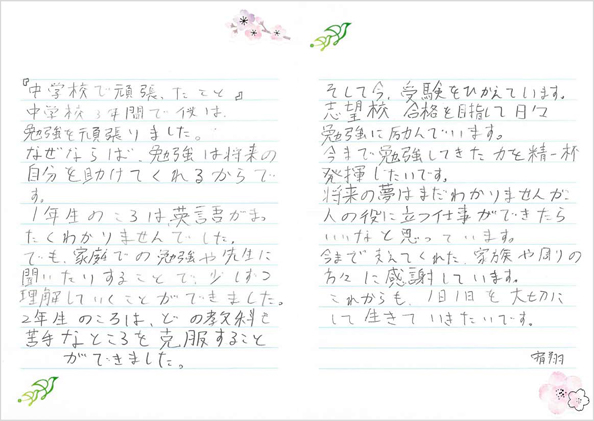 『中学校で頑張ったこと』
中学校3年間で僕は、
勉強を頑張りました。
なぜならば、勉強は将来の
自分を助けてくれるからで
す。
1年生のころは、英語がまっ
たくわかりませんでした。
でも、家庭での勉強や先生に
聞いたりすることで、少しずつ
理解していくことができました。
2年生のころは、どの教科も
苦手なところを克服すること
ができました。
そして今、受験をひかえています。
志望校 合格を目指して日々
勉強に励んでいます。
今まで勉強してきた力を精一杯
発揮したいです。
将来の夢はまだわかりませんが、
人の役に立つ仕事ができたら
いいなと思っています。
今まで支えてくれた、家族や周りの
方々に感謝しています。
これからも、1日1日を大切に
して生きていきたいです。